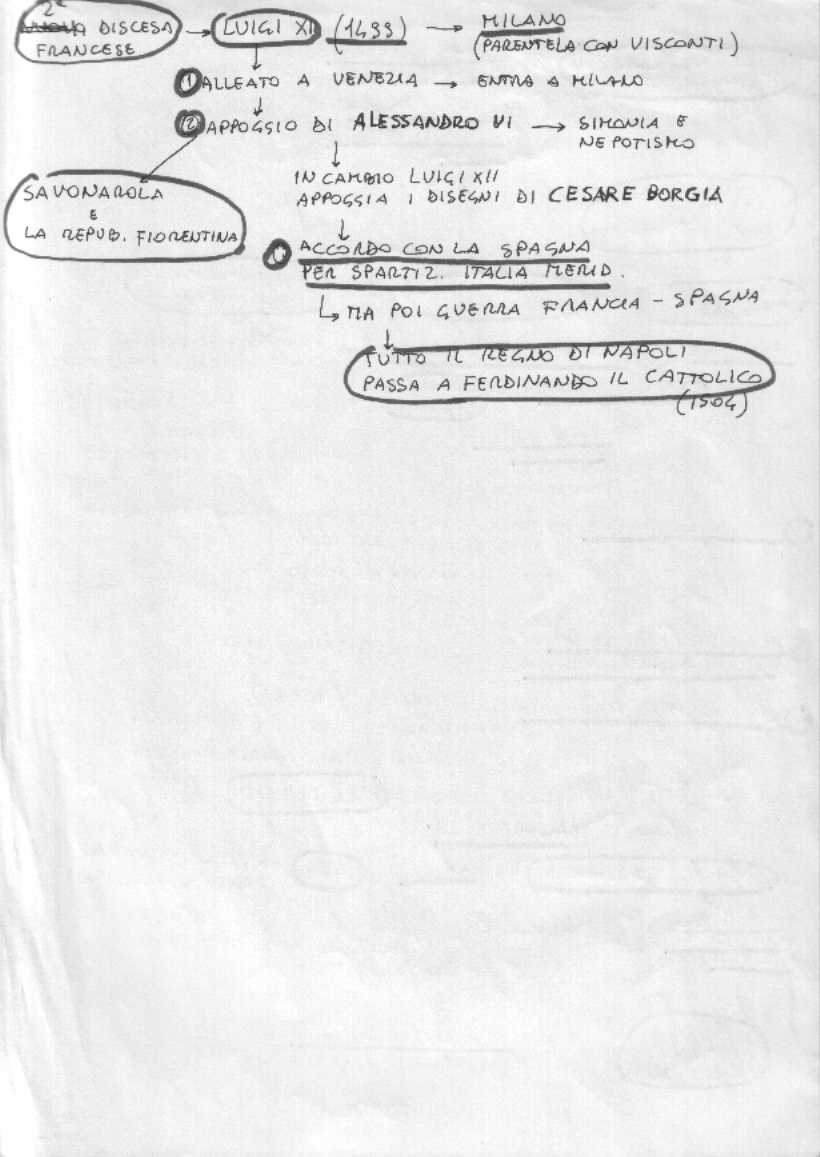 2ª
NUOVA DISCESA → LUIGI XII (1499) → MILANO
FRANCESE
(PARENTELA CON VISCONTI)
1 ALLEATO A VENEZIA → ENTRA A MILANO
2 APPOGGIO DI ALESSANDRO VI → SIMONIA E
NEPOTISMO
IN CAMBIO LUIGI XII
APPOGGIA I DISEGNI DI CESARE BORGIA
SAVONAROLA
E
LA REPUB. FIORENTINA
ACCORDO CON LA SPAGNA
PER SPARTIZ. ITALIA MERID.
MA POI GUERRA FRANCIA - SPAGNA
TUTTO IL REGNO DI NAPOLI
PASSA A FERDINANDO IL CATTOLICO
(1504)